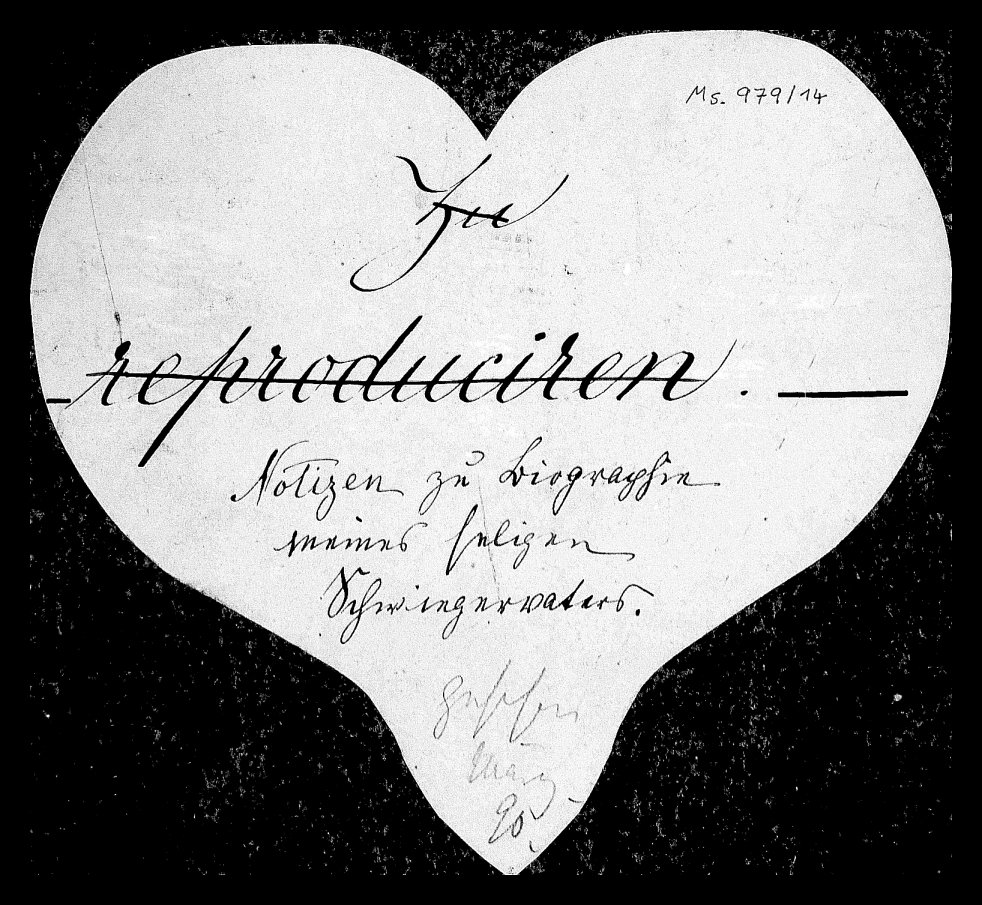 Ms. 979/14
Zu
reproduciren.
Notizen zu Biographie
meines seligen
Schwiegervaters.
gesehen
März
90.